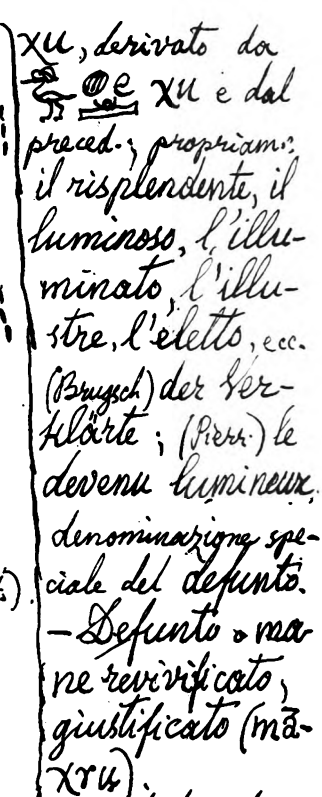 χu, derivato da
χu e dal
preced.; propriam.:
il risplendente, il
luminoso, l'illu-
minato, l'illu-
stre, l'eletto, ecc.
(Brugsch) der Ver-
klärte; (Pierr.) le
devenu lumineux.
denominazione spe-
ciale del defunto.
— Defunto o ma-
ne revivificato,
giustificato (mā-
χru)